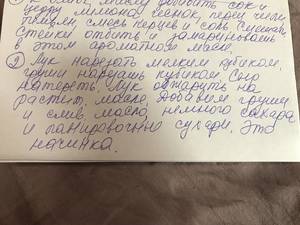 цедру лимона, чеснок, перец чили,
тимьян, смесь перцев и соль. Смешать
Стейки отбить и замариновать
в этом ароматном масле.
② Лук нарезать мелким кубиком,
груши нарезать кубиком. Сыр
натереть. Лук обжарить на
растит. масле, добавить груши
и слив. масло, немного сахара
и панировочные сухари. Это
начинка.